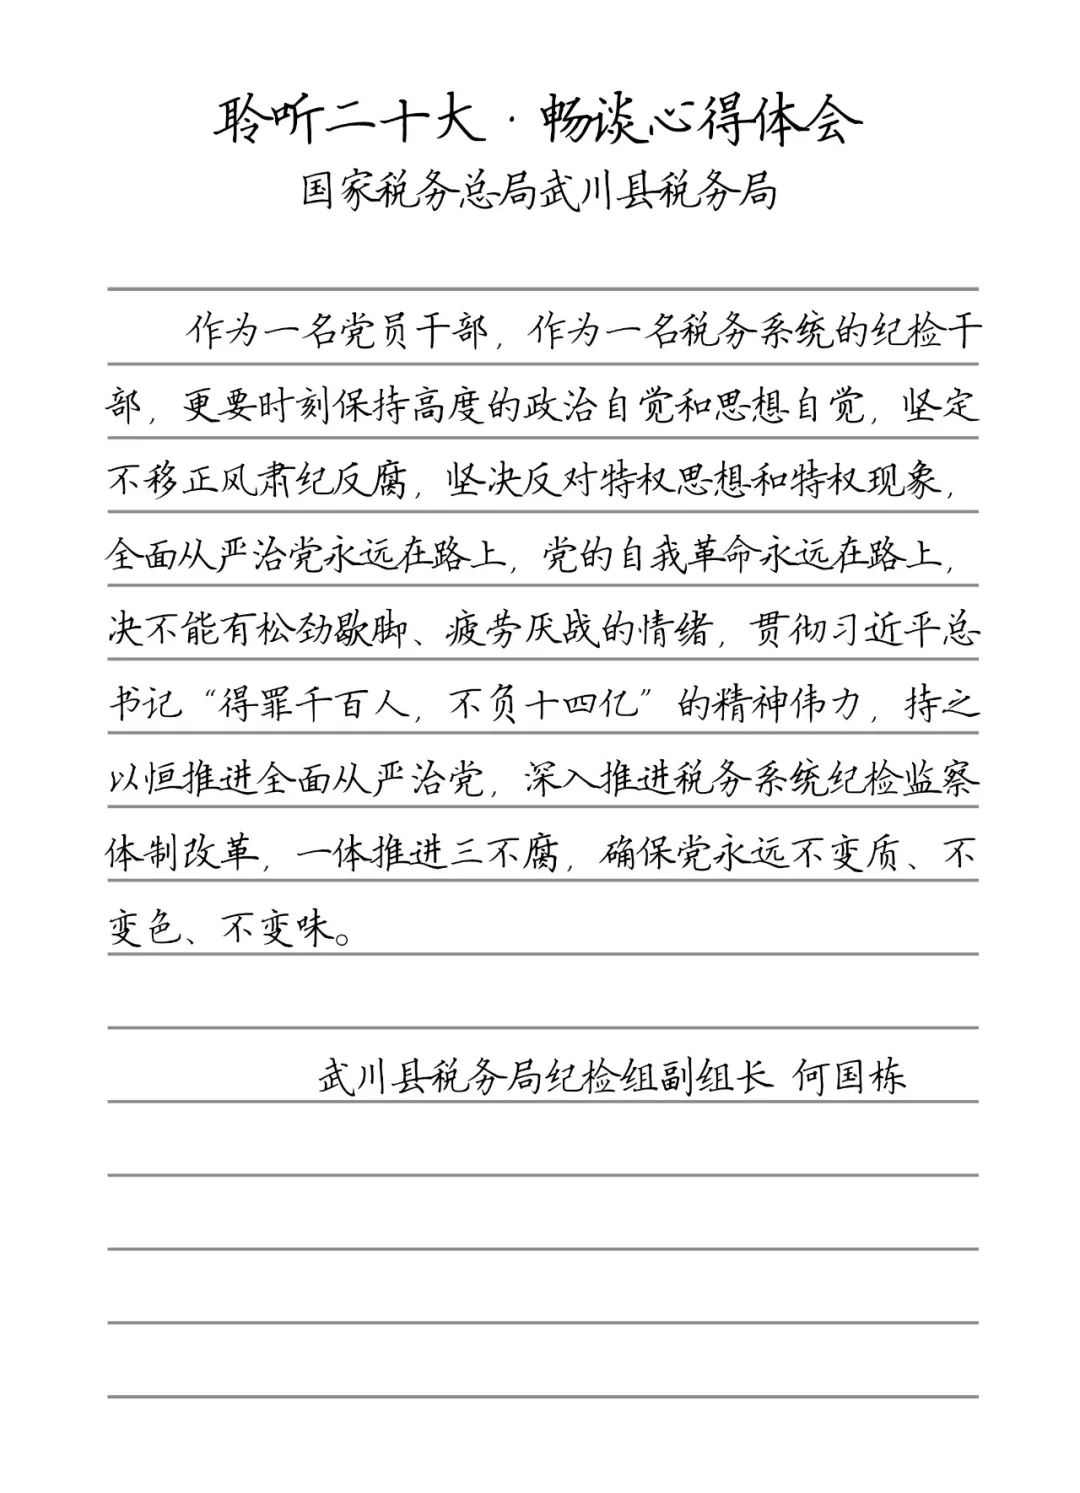 聆听二十大·畅谈心得体会
国家税务总局武川县税务局
作为一名党员干部，作为一名税务系统的纪检干
部，更要时刻保持高度的政治自觉和思想自觉，坚定
不移正风肃纪反腐，坚决反对特权思想和特权现象，
全面从严治党永远在路上，党的自我革命永远在路上，
决不能有松劲歇脚、疲劳厌战的情绪，贯彻习近平总
书记“得罪千百人，不负十四亿”的精神伟力，持之
以恒推进全面从严治党，深入推进税务系统纪检监察
体制改革，一体推进三不腐，确保党永远不变质、不
变色、不变味。
武川县税务局纪检组副组长 何国栋